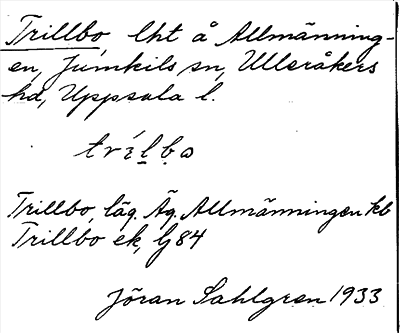 Trillbo, lht å Allmänning-
en, Jumkils sn, Ulleråkers
hd, Uppsala l.
trílbo
Trillbo, läg. Äg. Allmänningen kb
Trillbo ek, G84
Jöran Sahlgren 1933